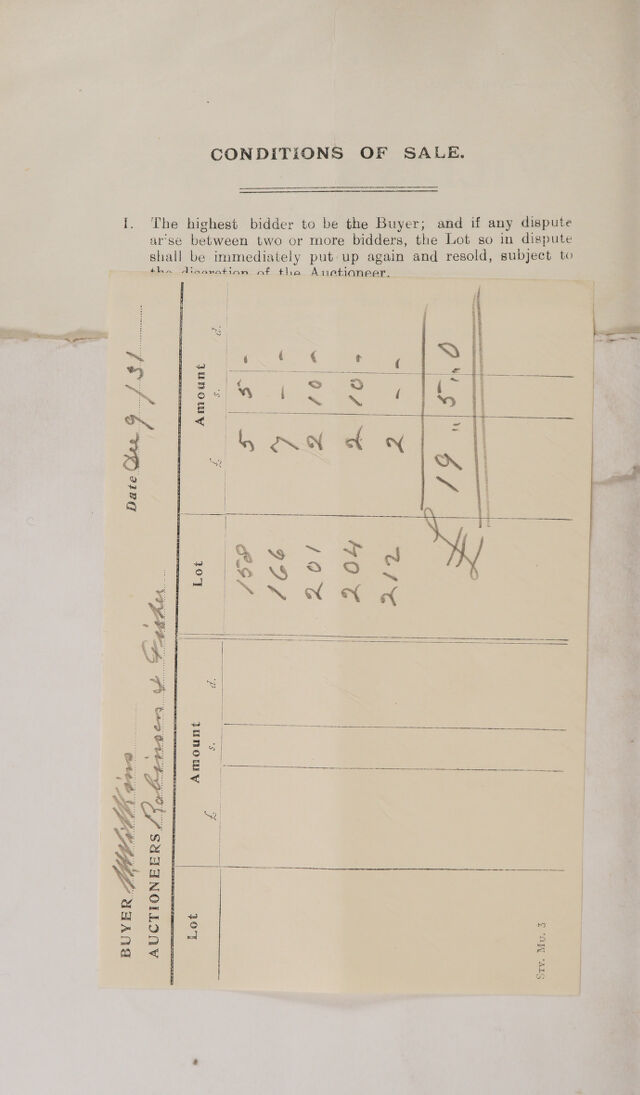 CONDITIONS OF SALE.
1. The highest bidder to be the Buyer; and if any dispute
arise between two or more bidders, the Lot so in dispute
shall be immediately put up again and resold, subject to
the discretion of the Auctioneer.
BUYER Wilkins Date Dec 9/31
AUCTIONEERS Robinson & Fisher
Lot Amount Lot Amount
£ s. d. £ s. d.
158 5 5 -
166 7 - -
201 2 10 -
204 2 10 -
212 2 - -
£ 19 " 5 " 0
Stv. Mu. 3